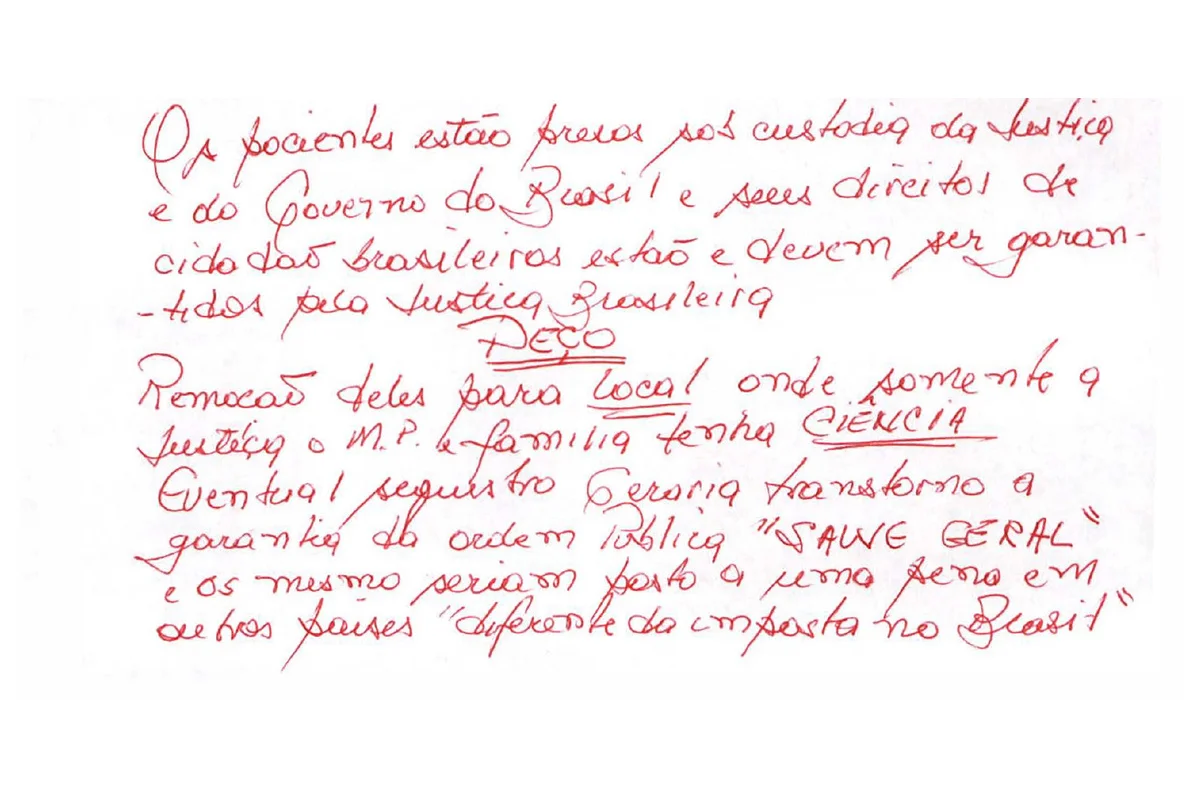 Os pacientes estão presos sob custodia da Justiça
e do Governo do Brasil e seus direitos de
cidadaõ brasileiros estaõ e devem ser garan-
-tidos pela Justiça Brasileira
PEÇO
Remocaõ deles para Local onde somente a
Justiça o M.P. e familia tenha CIÊNCIA
Eventual sequestro Geraria transtorno a
garantia da ordem Pública "SALVE GERAL"
e os mesmo seriam posto a uma pena em
outros países "diferente da imposta no Brasil"